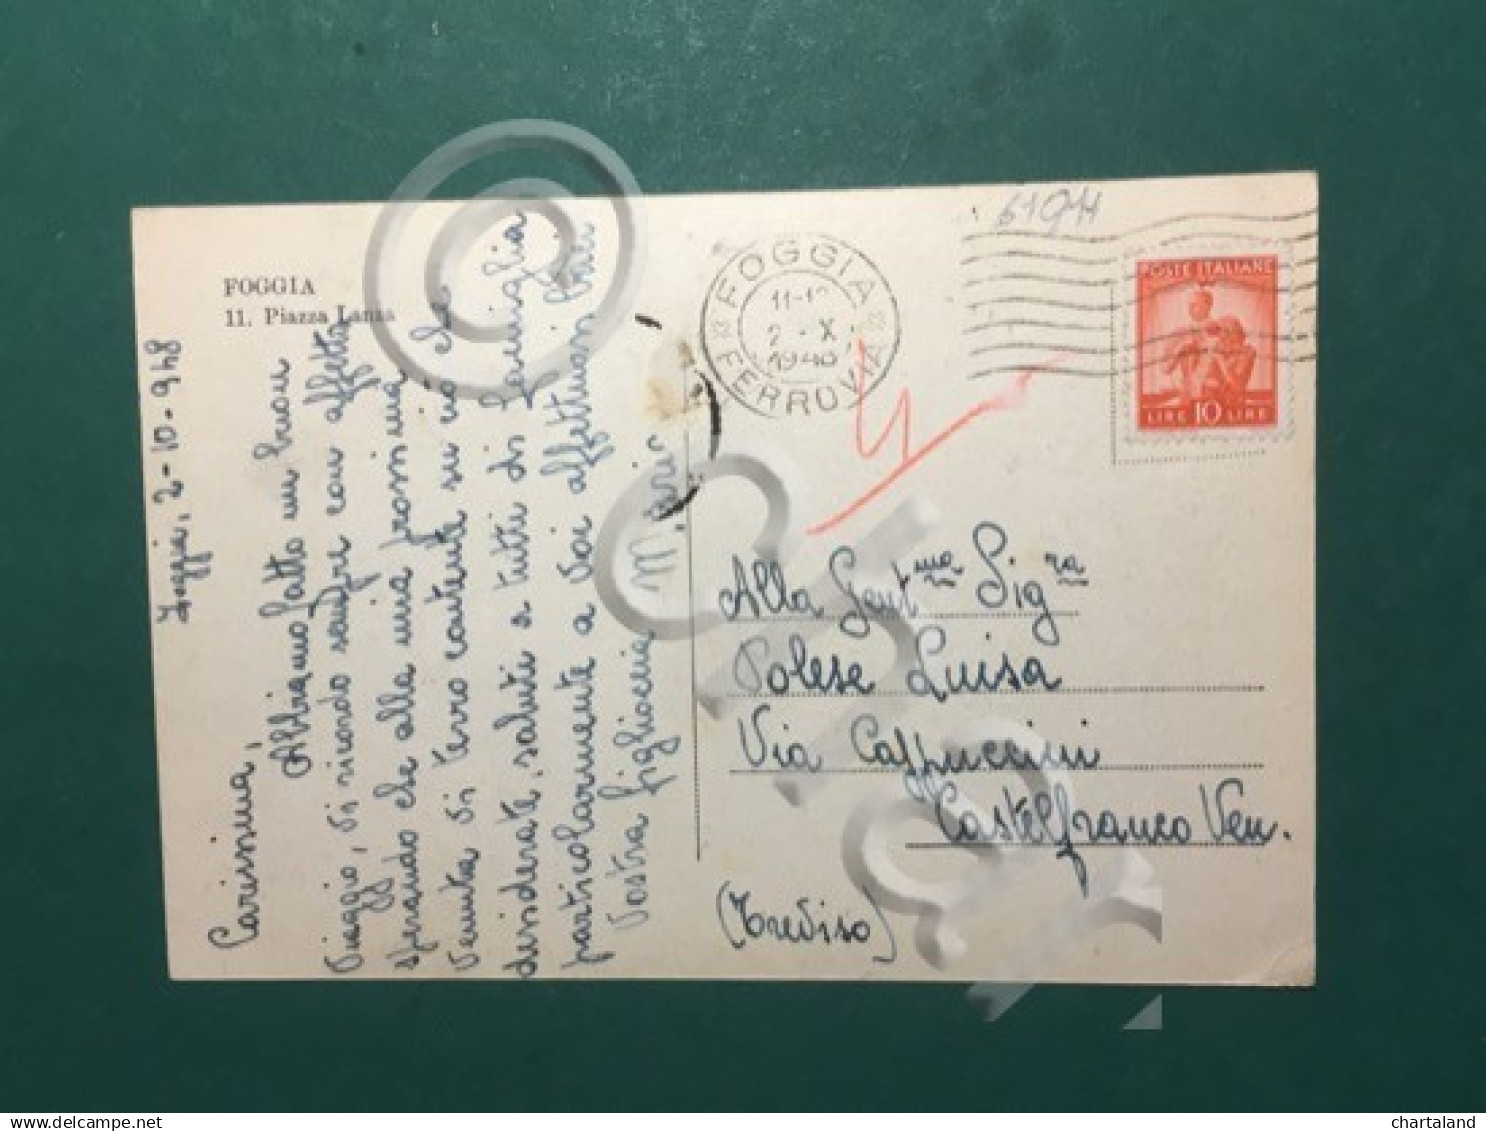 FOGGIA
11. Piazza Lanza
Foggia, 2-10-948
Carissima,
Abbiamo fatto un buon
viaggio, vi ricordo sempre con affetto
sperando che alla mia prossima
venuta vi terrò contente su ciò che
desiderate, saluti a tutti di famiglia
particolarmente a voi affettuosi baci
Vostra figlioccia
FOGGIA
11-12
2-X
1948
FERROVIA
POSTE ITALIANE
LIRE 10 LIRE
Alla Gentma Sigra
Polese Luisa
Via Cappuccini
Castelfranco Ven.
(Treviso)
chartaland